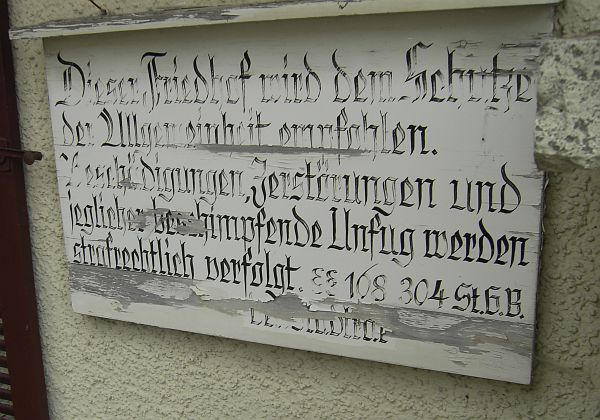 Dieser Friedhof wird dem Schutze
der Allgemeinheit empfohlen.
Beschädigungen, Zerstörungen und
jeglicher beschimpfende Unfug werden
strafrechtlich verfolgt. §§ 168 304 St.G.B.